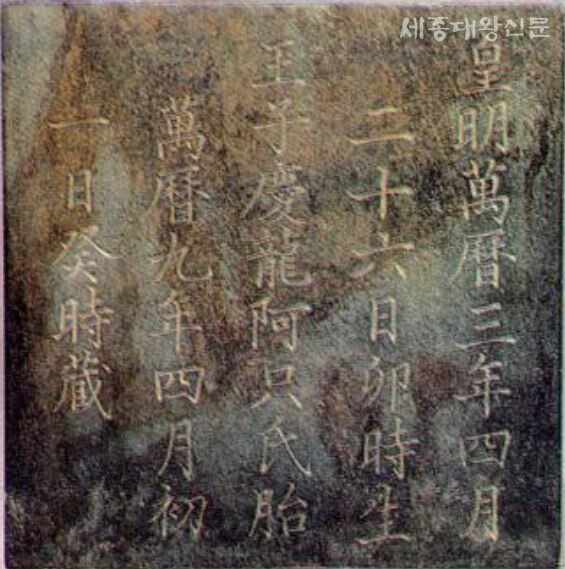 세종대왕신문
皇明萬曆三年四月
二十六日卯時生
王子慶龍阿只氏胎
萬曆九年四月初
一日癸時藏